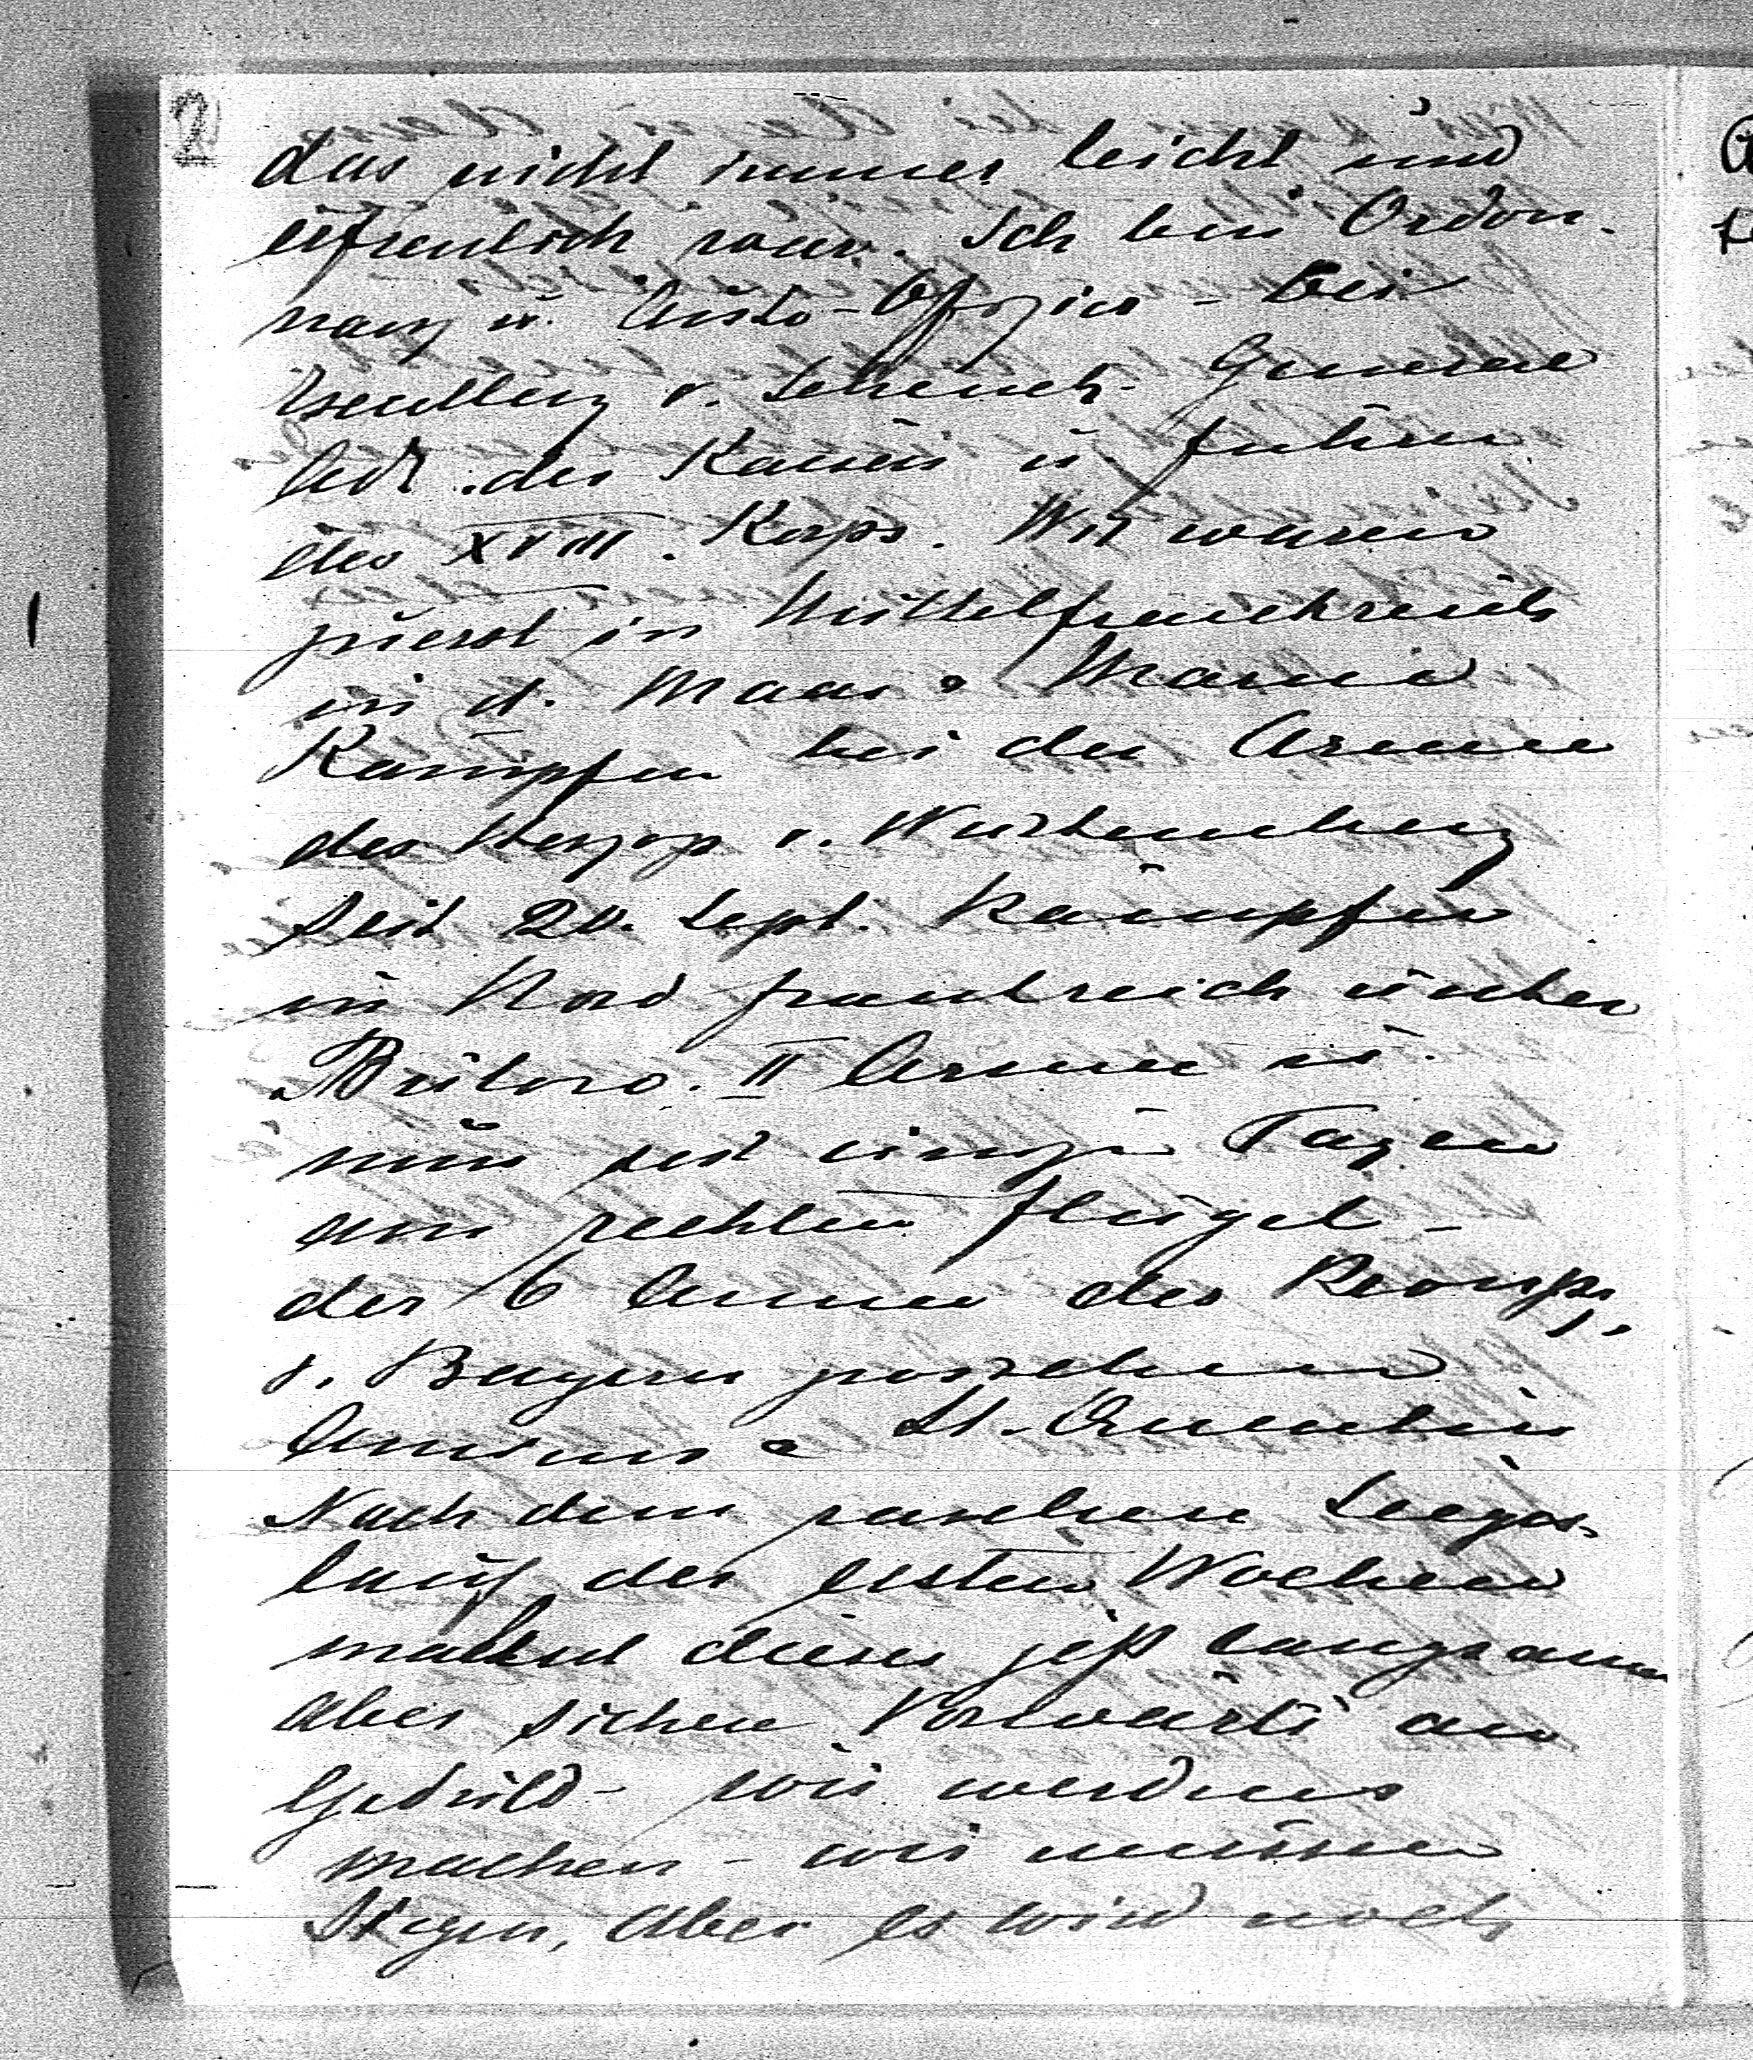 2
das nicht immer leicht und
erfreulich war. Ich bin Ordon-
nanz u. Auto-Offizier - bei
Exzellenz v. Schenck - General
Adt. des Kaisers u. Führer
des XVIII. Korps. Wir waren
zuerst in Mittelfrankreich
in d. Maas - Marne
Kämpfen bei der Armee
des Herzogs v. Württemberg
Seit 20. Sept. kämpfen
in Nordfrankreich unter
Bülow. II Armee u.
nun seit einigen Tagen
am rechten Flügel -
der 6 Armee des Kronpr.
v. Bayern zwischen
Amiens - St. Quentin
Nach dem raschen Sieges-
lauf der ersten Wochen
mahnt dieses jetzt langsame
aber sichere Vorwärts an
Geduld - wir werdens
machen - wir müssen
Siegen, aber es wird noch